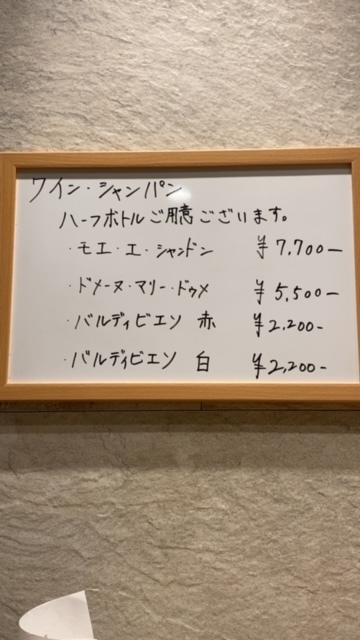 ワイン・シャンパン
ハーフボトルご用意ございます。
・モエ・エ・シャンドン ¥7,700-
・ドメーヌ・マリー・ドゥメ ¥5,500-
・バルディビエソ 赤 ¥2,200-
・バルディビエソ 白 ¥2,200-